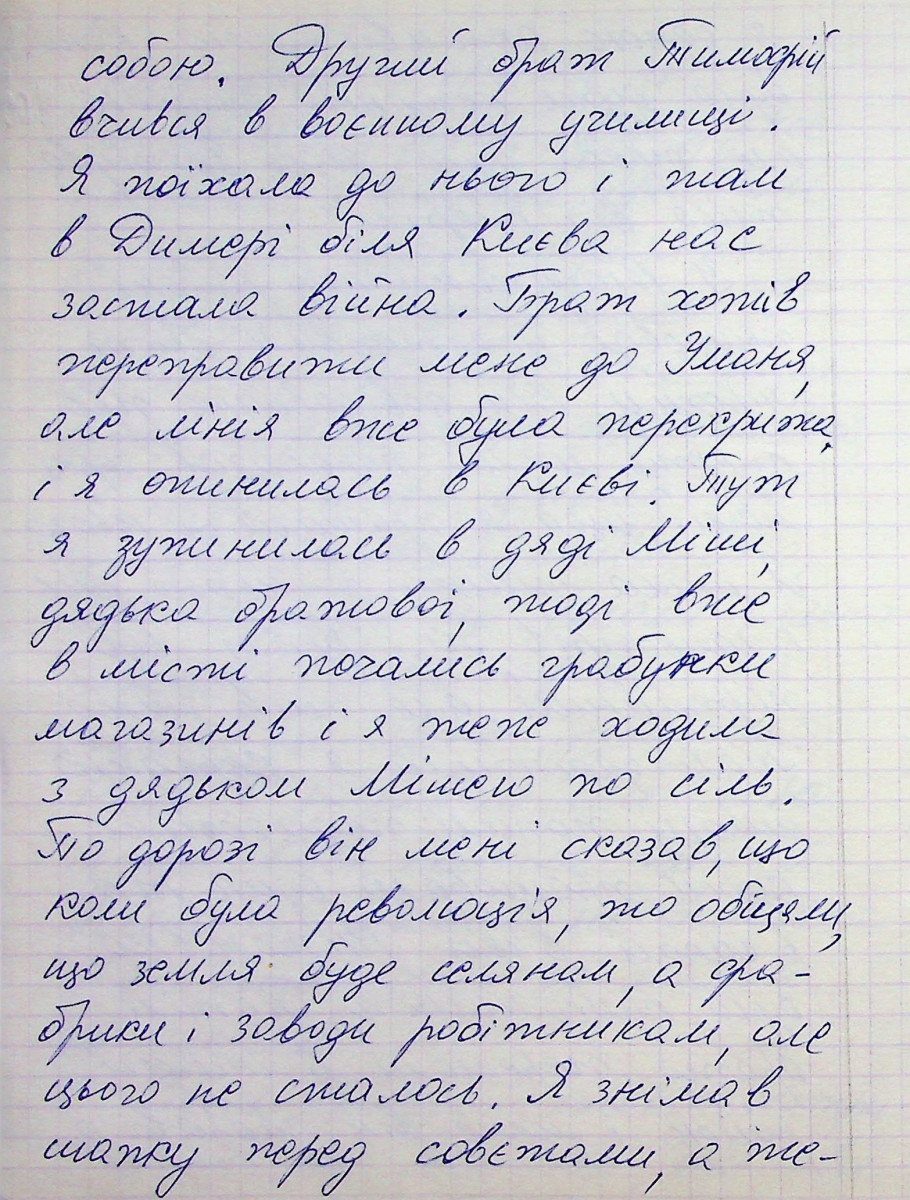 собою. Другий брат Тимофій
вчився в воєнному училищі.
Я поїхала до нього і там
в Димері біля Києва нас
застала війна. Брат хотів
переправити мене до Уманя,
але лінія вже була перекрита,
і я опинилась в Києві. Тут
я зупинилась в дяді Міші,
дядька братової, тоді вже
в місті почались грабунки
магазинів і я теж ходила
з дядьком Мішею по сіль.
По дорозі він мені сказав, що
коли була революція, то обіцяли,
що земля буде селянам, а фа-
брики і заводи робітникам, але
цього не сталось. Я знімав
шапку перед совєтами, а те-